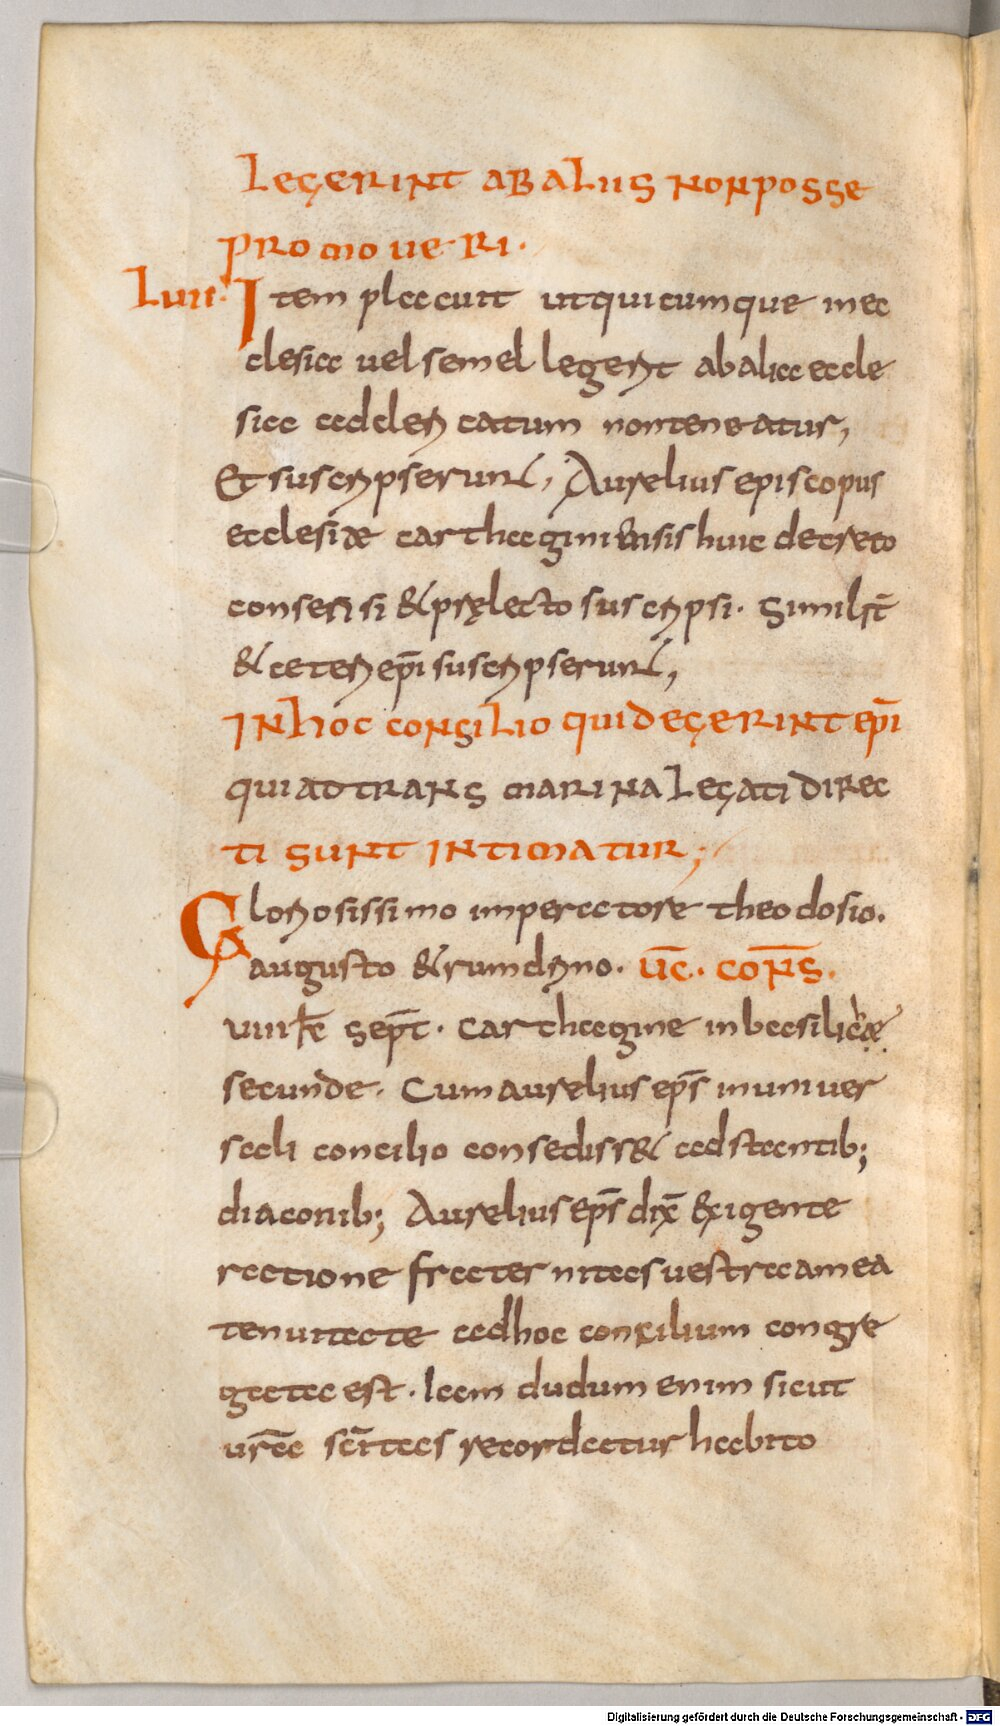 LEGERINT AB ALIIS NON POSSE
PROMOVERI.
LVII. Item placuit ut quicumque in ec
clesia vel semel legerit ab alia eccle
sia ad clericatum non teneatur,
Et suscripserunt, Aurelius episcopus
ecclesiae carthaginiensis huic decreto
consensi & pręlecto suscripsi. Similit̄
& ceteri ep̄i suscripserunt,
IN HOC CONSILIO QUID EGERINT EP̄I
QUI AD TRANS MARINA LEGATI DIREC
TI SUNT INTIMATUR;
Gloriosissimo imperatore theodosio.
augusto & rumorido. UC̄. COPS̄.
VIII kl̄ sept̄. Carthagine in basilicae
secunde. Cum aurelius ep̄s in univer
sali concilio consediss& adstantib;
diaconib; Aurelius ep̄s dix̄ Exigente
ratione frater nitas vestra a mea
tenuitate ad hoc concilium congre
gata est. Iam dudum enim sicut
ur̄a sc̄itas recordatur habito
Digitalisierung gefördert durch die Deutsche Forschungsgemeinschaft - DFG